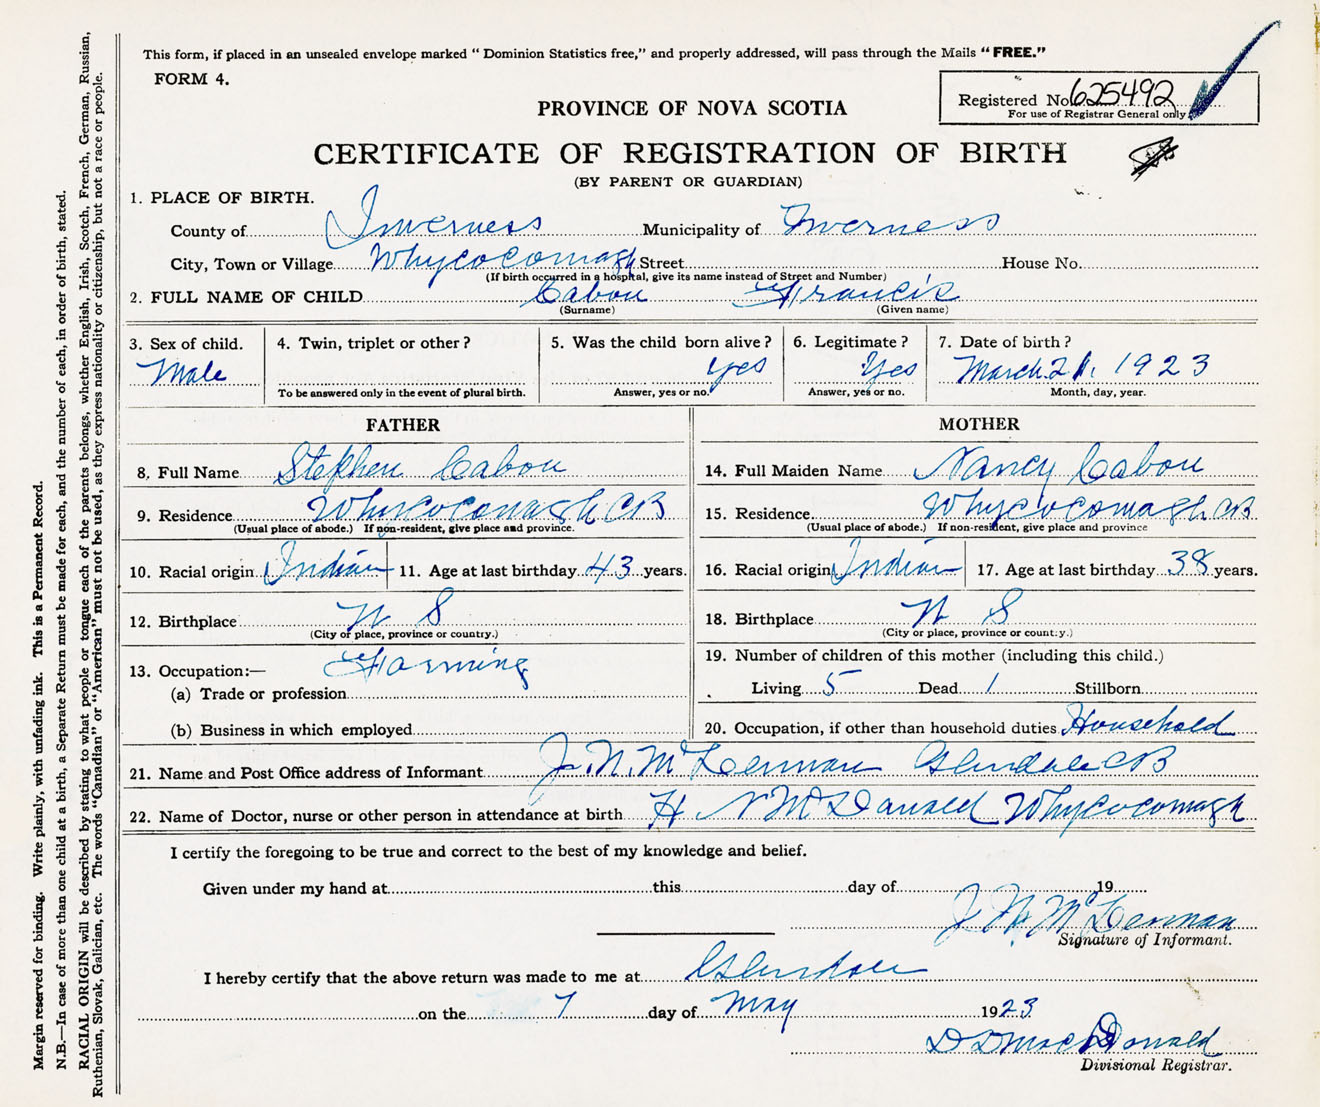 This form, if placed in an unsealed envelope marked "Dominion Statistics free," and properly addressed, will pass through the Mails "FREE."
FORM 4.
Registered No. 625492
For use of Registrar General only
PROVINCE OF NOVA SCOTIA
CERTIFICATE OF REGISTRATION OF BIRTH
(BY PARENT OR GUARDIAN)
1. PLACE OF BIRTH.
County of Inverness Municipality of Inverness
City, Town or Village Whycocomagh Street House No.
(If birth occurred in a hospital, give its name instead of Street and Number)
2. FULL NAME OF CHILD Cabou Francis
(Surname) (Given name)
3. Sex of child. 4. Twin, triplet or other? 5. Was the child born alive? 6. Legitimate? 7. Date of birth?
Male yes Yes March 21. 1923
To be answered only in the event of plural birth. Answer, yes or no. Answer, yes or no. Month, day, year.
FATHER MOTHER
8. Full Name Stephen Cabou 14. Full Maiden Name Nancy Cabou
9. Residence Whycocomagh CB 15. Residence Whycocomagh. CB
(Usual place of abode.) If non-resident, give place and province. (Usual place of abode.) If non-resident, give place and province
10. Racial origin Indian 11. Age at last birthday 43 years. 16. Racial origin Indian 17. Age at last birthday 38 years.
12. Birthplace N S 18. Birthplace N S
(City or place, province or country.) (City or place, province or country.)
13. Occupation:— Farming 19. Number of children of this mother (including this child.)
(a) Trade or profession Living 5 Dead 1 Stillborn
(b) Business in which employed 20. Occupation, if other than household duties Household
21. Name and Post Office address of Informant J. N. McLennan Glendale CB
22. Name of Doctor, nurse or other person in attendance at birth H N McDonald Whycocomagh
I certify the foregoing to be true and correct to the best of my knowledge and belief.
Given under my hand at this day of 19
J. N. McLennan
Signature of Informant.
I hereby certify that the above return was made to me at Glendale
on the 7 day of May 1923
D D MacDonald
Divisional Registrar.
Margin reserved for binding. Write plainly, with unfading ink. This is a Permanent Record.
N.B.—In case of more than one child at a birth, a Separate Return must be made for each, and the number of each, in order of birth, stated.
RACIAL ORIGIN will be described by stating to what people or tongue each of the parents belongs, whether English, Irish, Scotch, French, German, Russian,
Ruthenian, Slovak, Galician, etc. The words "Canadian" or "American" must not be used, as they express nationality or citizenship, but not a race or people.